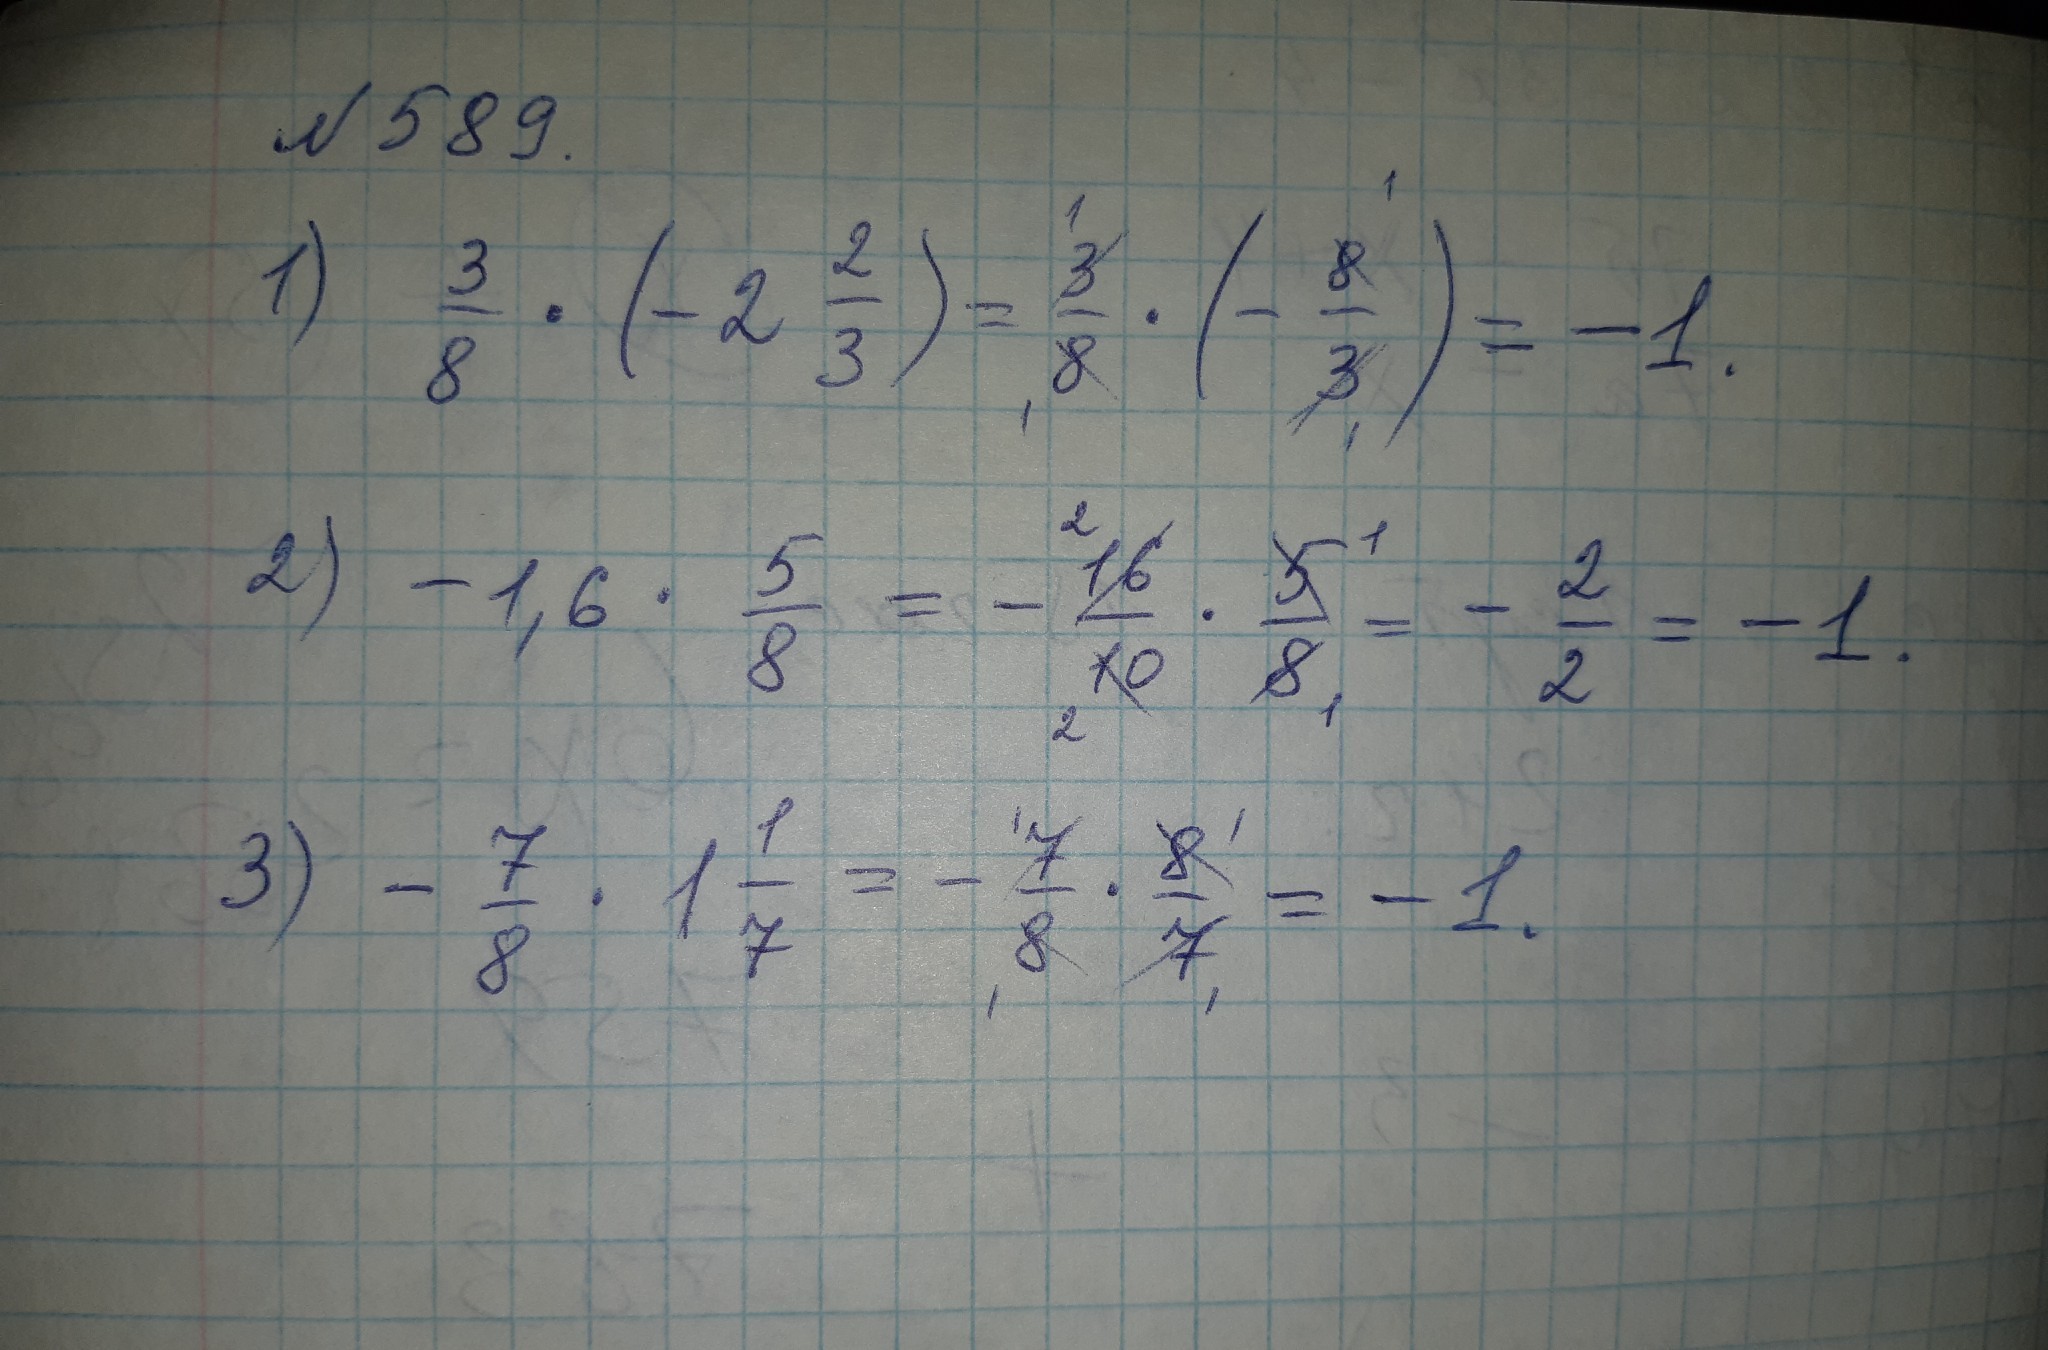 № 589.
1) 3/8 · (-2 2/3) = 3/8 · (- 8/3) = -1.
2) -1,6 · 5/8 = - 16/10 · 5/8 = - 2/2 = -1.
3) - 7/8 · 1 1/7 = - 7/8 · 8/7 = -1.